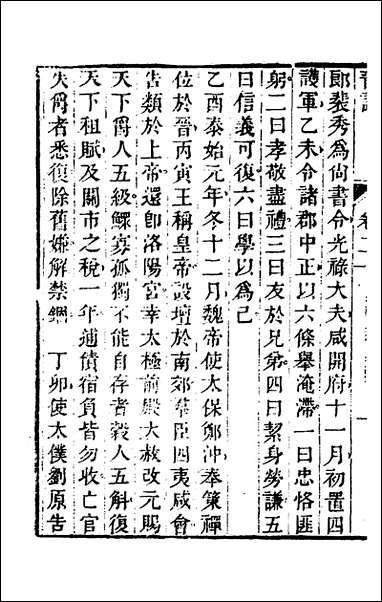 晉記
卷二
郎裴秀爲尙書令光祿大夫咸開府十一月初置四
護軍乙未令諸郡中正以六條舉淹滯一曰忠恪匪
躬二曰孝敬盡禮三曰友於兄弟四曰絜身勞謙五
曰信義可復六曰學以爲己
乙酉泰始元年冬十二月魏帝使太保鄭沖奉策禪
位於晉丙寅王稱皇帝設壇於南郊羣臣四夷咸會
告類於上帝還卽洛陽宮幸太極前殿大赦改元賜
天下爵人五級鰥寡孤獨不能自存者穀人五斛復
天下租賦及關市之稅一年逋債宿負皆勿收亡官
失爵者悉復除舊嫌解禁錮　丁卯使太僕劉原告